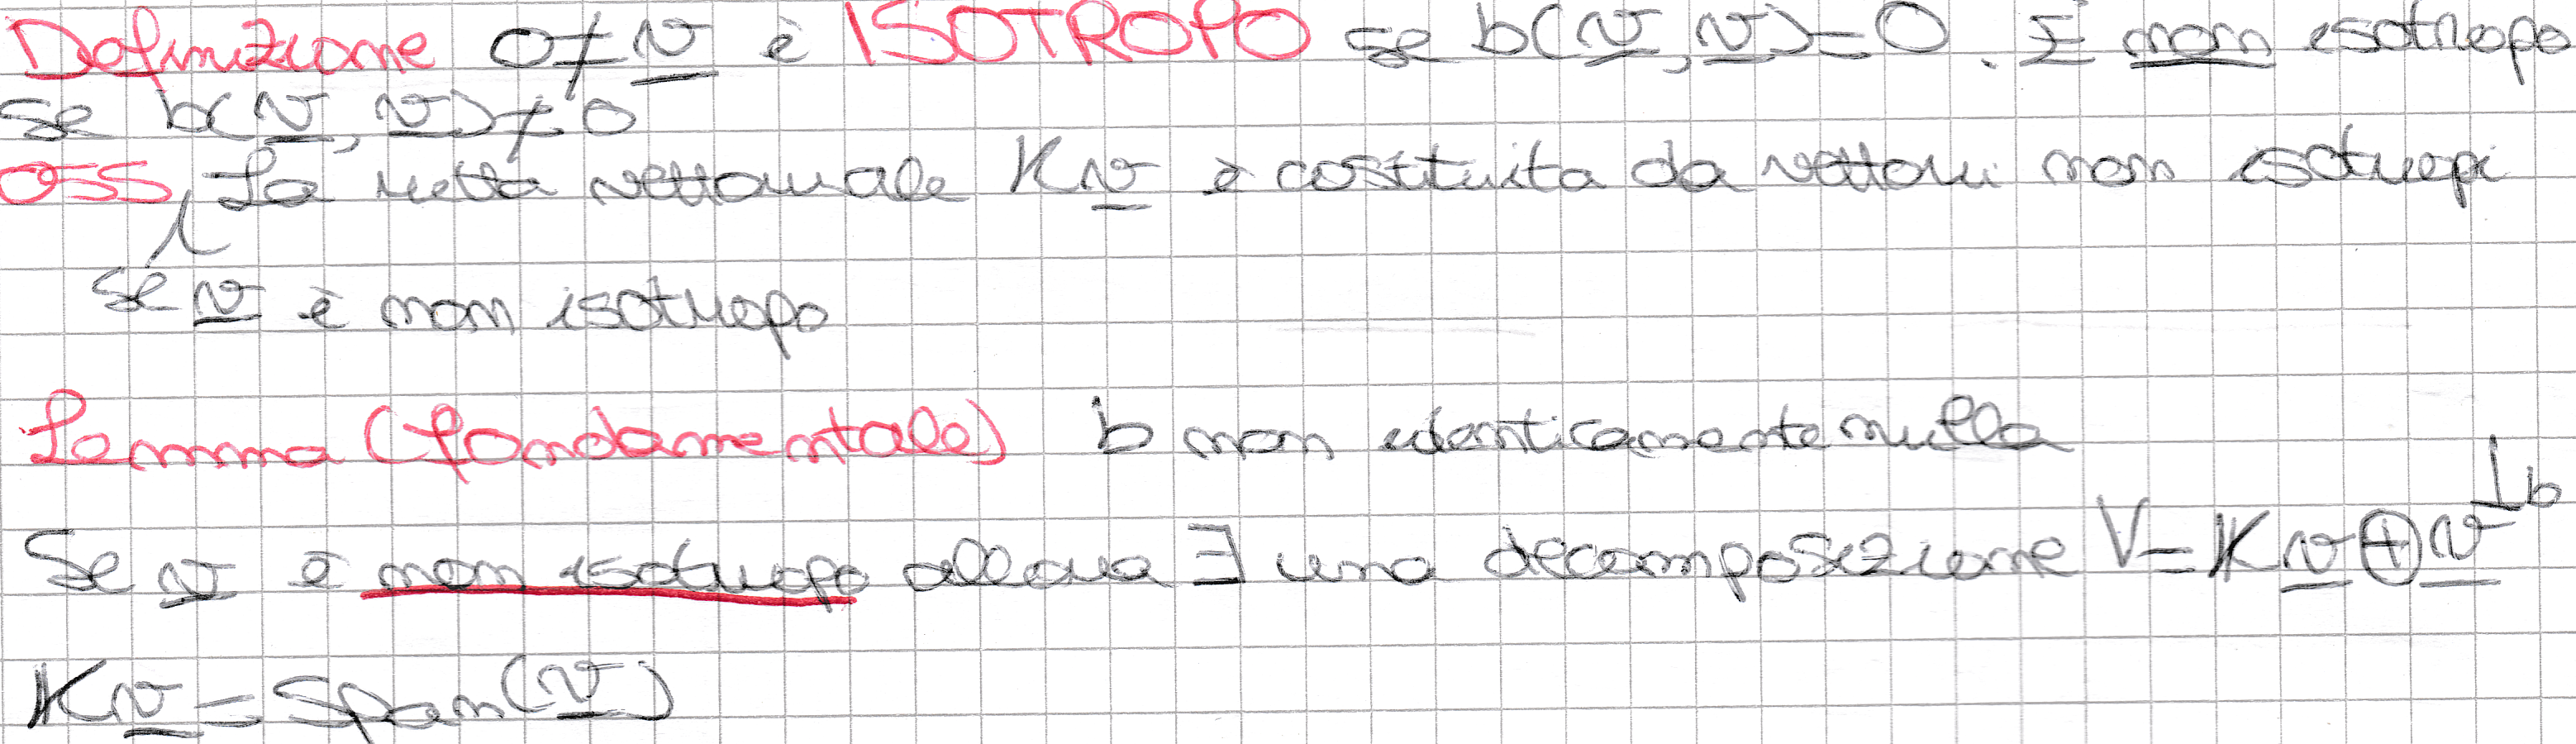 Definizione 0≠v è ISOTROPO se b(v,v)=0. È non isotropo
se b(v,v)≠0
OSS La retta vettoriale Kv è costituita da vettori non isotropi
se v è non isotropo
Lemma (fondamentale) b non identicamente nulla
Se v è non isotropo allora ∃ una decomposizione V=Kv⊕v^⊥b
Kv=Span(v)